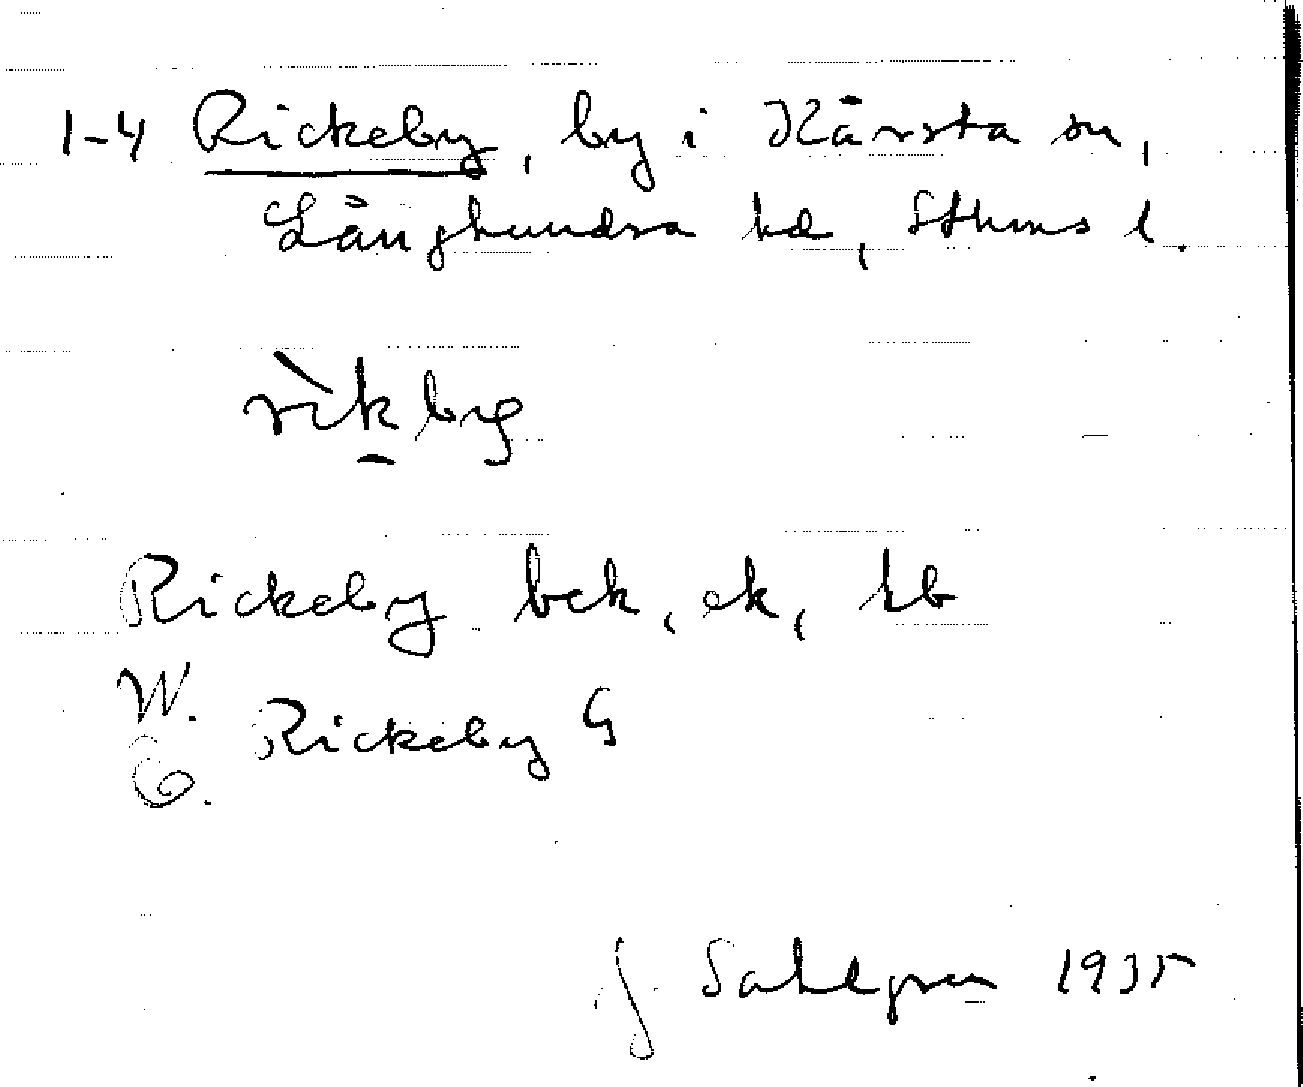 1-4 Rickeby, by i Kårsta sn,
Långhundra hd, Sthms l.
rìkby
Rickeby bek, ek, hb
W.
Rickeby G
E.
J Sahlgren 1935